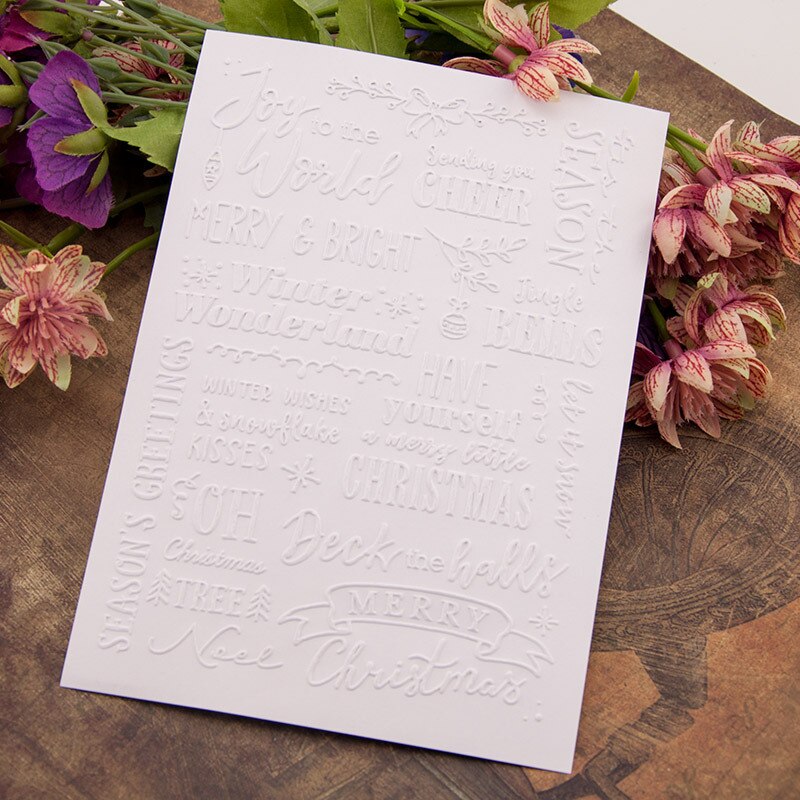 Joy
to the
World
Sending you
CHEER
'tis the
SEASON
MERRY & BRIGHT
Winter
Wonderland
Jingle
BELLS
HAVE
yourself
a merry little
CHRISTMAS
let it snow
WINTER WISHES
& snowflake
KISSES
SEASON'S GREETINGS
OH
Christmas
TREE
Deck the halls
Noel
MERRY
Christmas